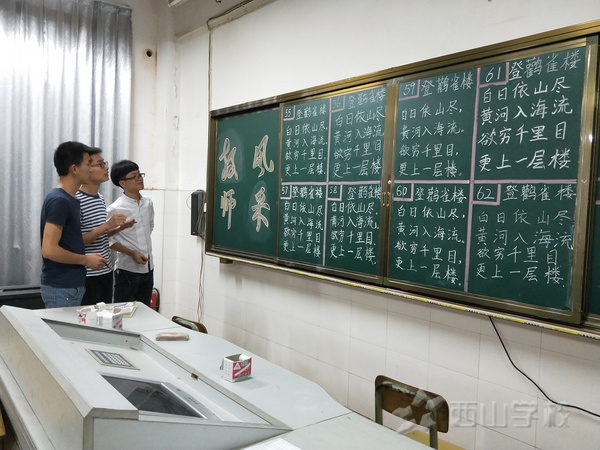 教师
风采
55 登鹳雀楼
白日依山尽
黄河入海流
欲穷千里目,
更上一层楼.
56 登鹳雀楼
白日依山尽,
黄河入海流.
欲穷千里目,
更上一层楼
59 登鹳雀楼
白日依山尽,
黄河入海流.
欲穷千里目,
更上一层楼.
61 登鹳雀楼
白日依山尽
黄河入海流
欲穷千里目
更上一层楼
57 登鹳雀楼
白日依山尽
黄河入海流
欲穷千里目,
更上一层楼.
58 登鹳雀楼
白日依山尽,
黄河入海流.
欲穷千里目,
更上一层楼.
60 登鹳雀楼
白日依山尽,
黄河入海流.
欲穷千里目,
更上一层楼.
62 登鹳雀楼
白日依山尽
黄河入海流
欲穷千里目,
更上一层楼.
西山学校